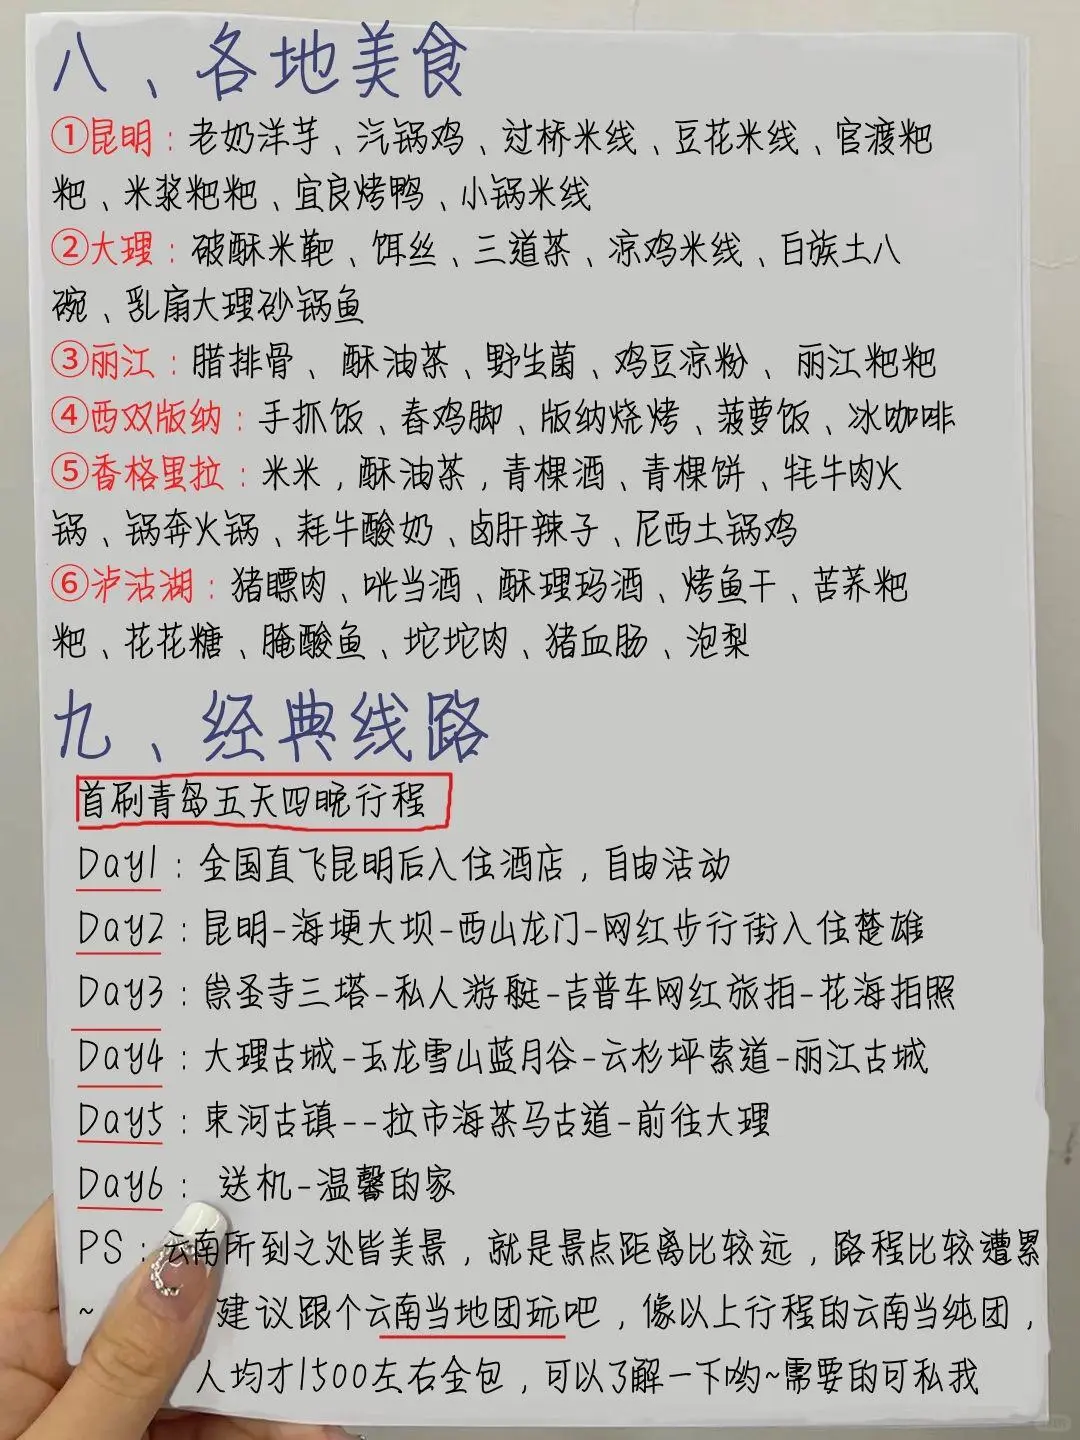 八、各地美食
①昆明：老奶洋芋、汽锅鸡、过桥米线、豆花米线、官渡粑
粑、米浆粑粑、宜良烤鸭、小锅米线
②大理：破酥米靶、饵丝、三道茶、凉鸡米线、白族土八
碗、乳扇大理砂锅鱼
③丽江：腊排骨、酥油茶、野生菌、鸡豆凉粉、丽江粑粑
④西双版纳：手抓饭、舂鸡脚、版纳烧烤、菠萝饭、冰咖啡
⑤香格里拉：米米，酥油茶，青棵酒、青棵饼、牦牛肉火
锅、锅奔火锅、耗牛酸奶、卤肝辣子、尼西土锅鸡
⑥泸沽湖：猪瞟肉、咣当酒、酥理玛酒、烤鱼干、苦荞粑
粑、花花糖、腌酸鱼、坨坨肉、猪血肠、泡梨
九、经典线路
首刷青岛五天四晚行程
Day1：全国直飞昆明后入住酒店，自由活动
Day2：昆明-海埂大坝-西山龙门-网红步行街入住楚雄
Day3：崇圣寺三塔-私人游艇-吉普车网红旅拍-花海拍照
Day4：大理古城-玉龙雪山蓝月谷-云杉坪索道-丽江古城
Day5：束河古镇--拉市海茶马古道-前往大理
Day6：送机-温馨的家
PS：云南所到之处皆美景，就是景点距离比较远，路程比较遭累
~建议跟个云南当地团玩吧，像以上行程的云南当纯团，
人均才1500左右全包，可以了解一下哟~需要的可私我